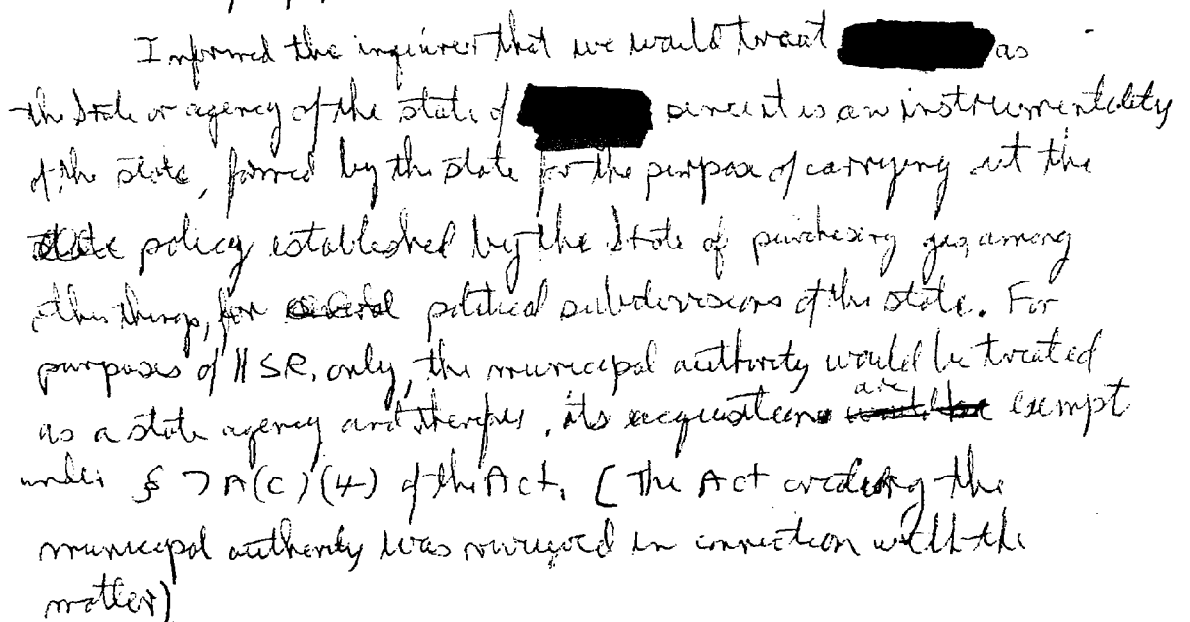 Informed the inquirer that we would treat as
the State or agency of the state of since it is an instrumentality
of the state, formed by the state for the purpose of carrying out the
state policy established by the State of purchasing gas, among
other things, for several political subdivisions of the state. For
purposes of HSR, only, the municipal authority would be treated
as a state agency and therefore, its acquisitions are would be exempt
under § 7A(c)(4) of the Act. [The Act creating the
municipal authority was reviewed in connection with the
matter)